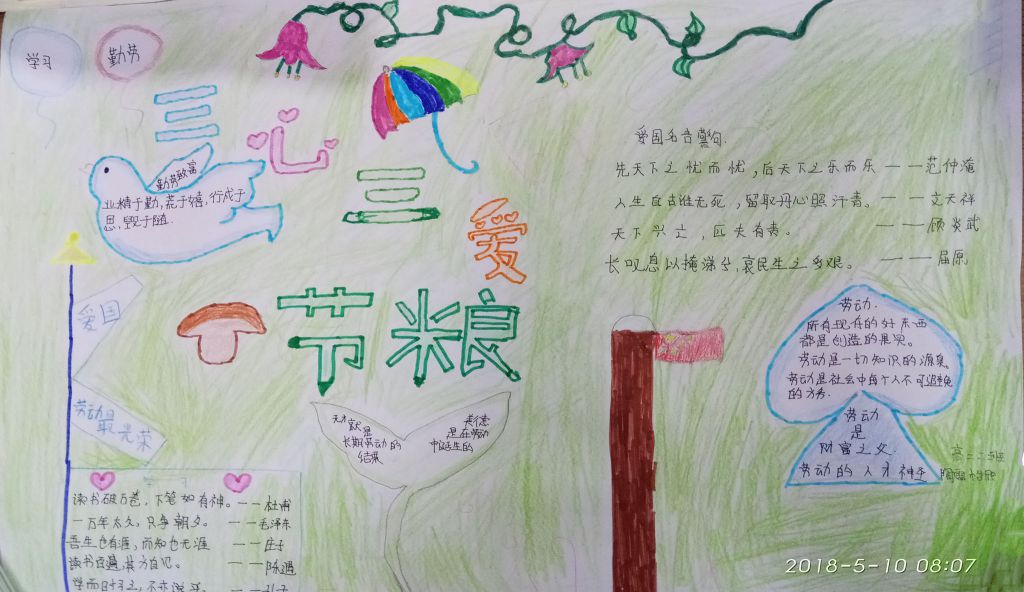 学习
勤劳
三心
三爱
节粮
勤劳致富
业精于勤,荒于嬉,行成于
思,毁于随.
爱国名言警句.
先天下之忧而忧,后天下之乐而乐 一一范仲淹
人生自古谁无死,留取丹心照汗青。一一文天祥
天下兴亡,匹夫有责。 一一顾炎武
长叹息以掩涕兮,哀民生之多艰。 一一屈原
爱国
劳动
最光荣
天才就是
长期劳动的
结果
美德
是在劳动
中诞生的
劳动.
所有现存的好东西
都是创造的果实。
劳动是一切知识的源泉。
劳动是社会中每个人不可避免
的义务.
劳动
是
财富之父
劳动的人才神圣
高二二班
学习
读书破万卷,下笔如有神。一一杜甫
一万年太久,只争朝夕。 一一毛泽东
吾生也有涯,而知也无涯 一一庄子
读书百遍,其义自见。 一一陈遇
学而时习之,不亦说乎。 一一孔子
2018-5-10 08:07